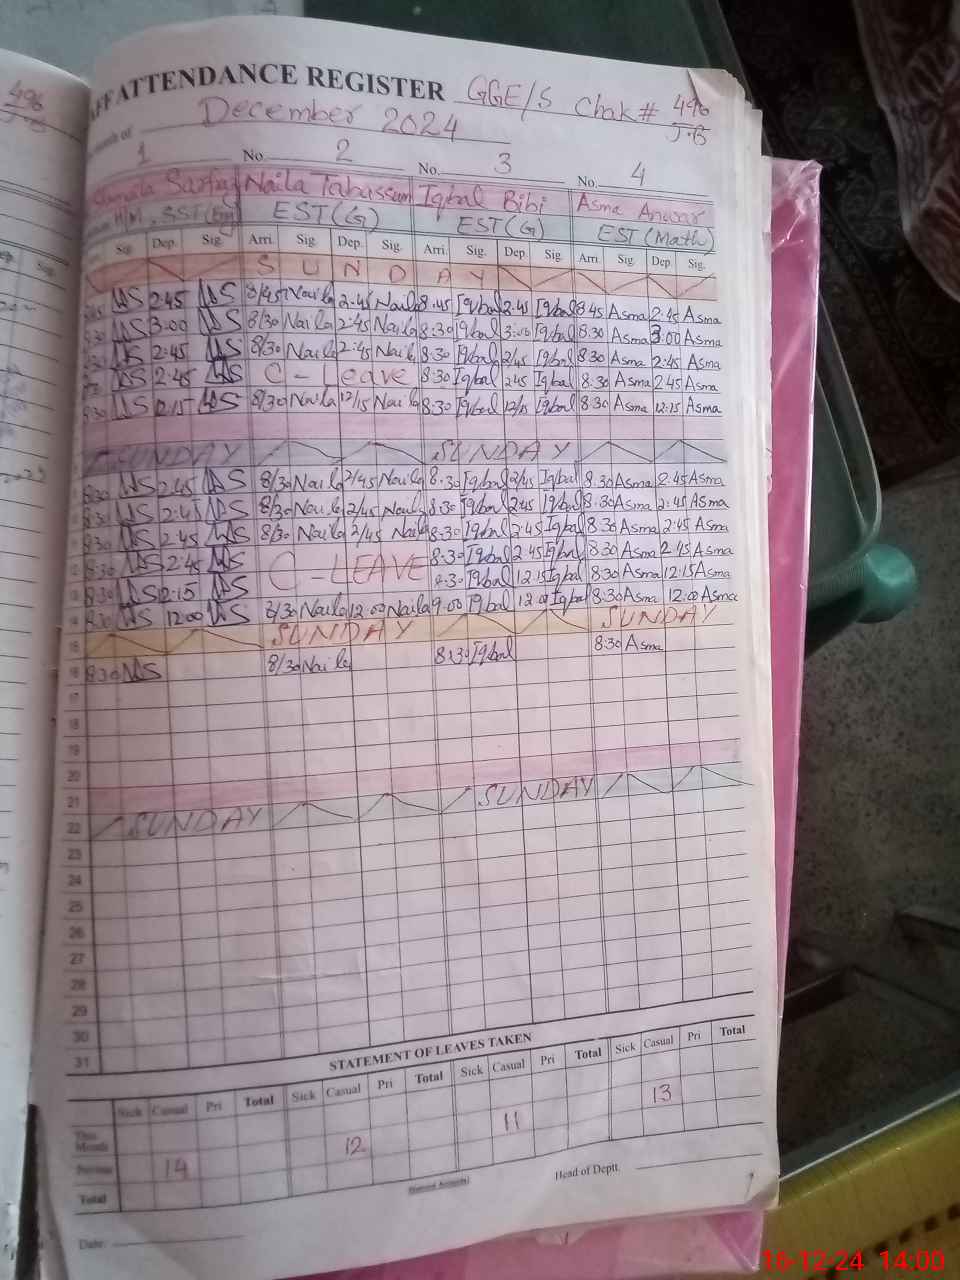 496
J.B
STAFF ATTENDANCE REGISTER GGE/S Chak # 496
J.B
month of December 2024
1 No. 2 No. 3 No. 4
Sarfraz Naila Tabassum Iqbal Bibi Asma Anwar
H/M, SST(Eng) EST(G) EST(G) EST(Math)
Sig. Dep. Sig. Arri. Sig. Dep. Sig. Arri. Sig. Dep. Sig. Arri Sig. Dep. Sig.
SUNDAY
2:45 8/45 Naila 2:45 Naila 8:45 Iqbal 2:45 Iqbal 8:45 Asma 2:45 Asma
8:30 3:00 8/30 Naila 2:45 Naila 8:30 Iqbal 3:00 Iqbal 8:30 Asma 3:00 Asma
8:30 2:45 8/30 Naila 2:45 Naila 8:30 Iqbal 2/45 Iqbal 8:30 Asma 2:45 Asma
2:45 C - Leave 8:30 Iqbal 2:45 Iqbal 8:30 Asma 2:45 Asma
8:30 12:15 8/30 Naila 12/15 Naila 8:30 Iqbal 12/15 Iqbal 8:30 Asma 12:15 Asma
SUNDAY SUNDAY
8:30 2:45 8/30 Naila 2/45 Naila 8:30 Iqbal 2/45 Iqbal 8:30 Asma 2:45 Asma
8:30 2:45 8/30 Naila 2/45 Naila 8:30 Iqbal 2:45 Iqbal 8:30 Asma 2:45 Asma
8:30 2:45 8/30 Naila 2/45 Naila 8:30 Iqbal 2:45 Iqbal 8:30 Asma 2:45 Asma
12 8:30 2:45 C - LEAVE 8:30 Iqbal 2:45 Iqbal 8:30 Asma 2:45 Asma
13 8:30 12:15 8:30 Iqbal 12:15 Iqbal 8:30 Asma 12:15 Asma
14 8:30 12:00 8/30 Naila 12:00 Naila 9:00 Iqbal 12:00 Iqbal 8:30 Asma 12:00 Asma
15 SUNDAY SUNDAY
16 8:30 8/30 Naila 8:30 Iqbal 8:30 Asma
17
18
19
20
21 SUNDAY
22 SUNDAY
23
24
25
26
27
28
29
30
31
STATEMENT OF LEAVES TAKEN
Sick Casual Pri Total Sick Casual Pri Total Sick Casual Pri Total Sick Casual Pri Total
This Month
Previous 14 12 11 13
Total
Head of Deptt.
Date:
16-12-24 14:00